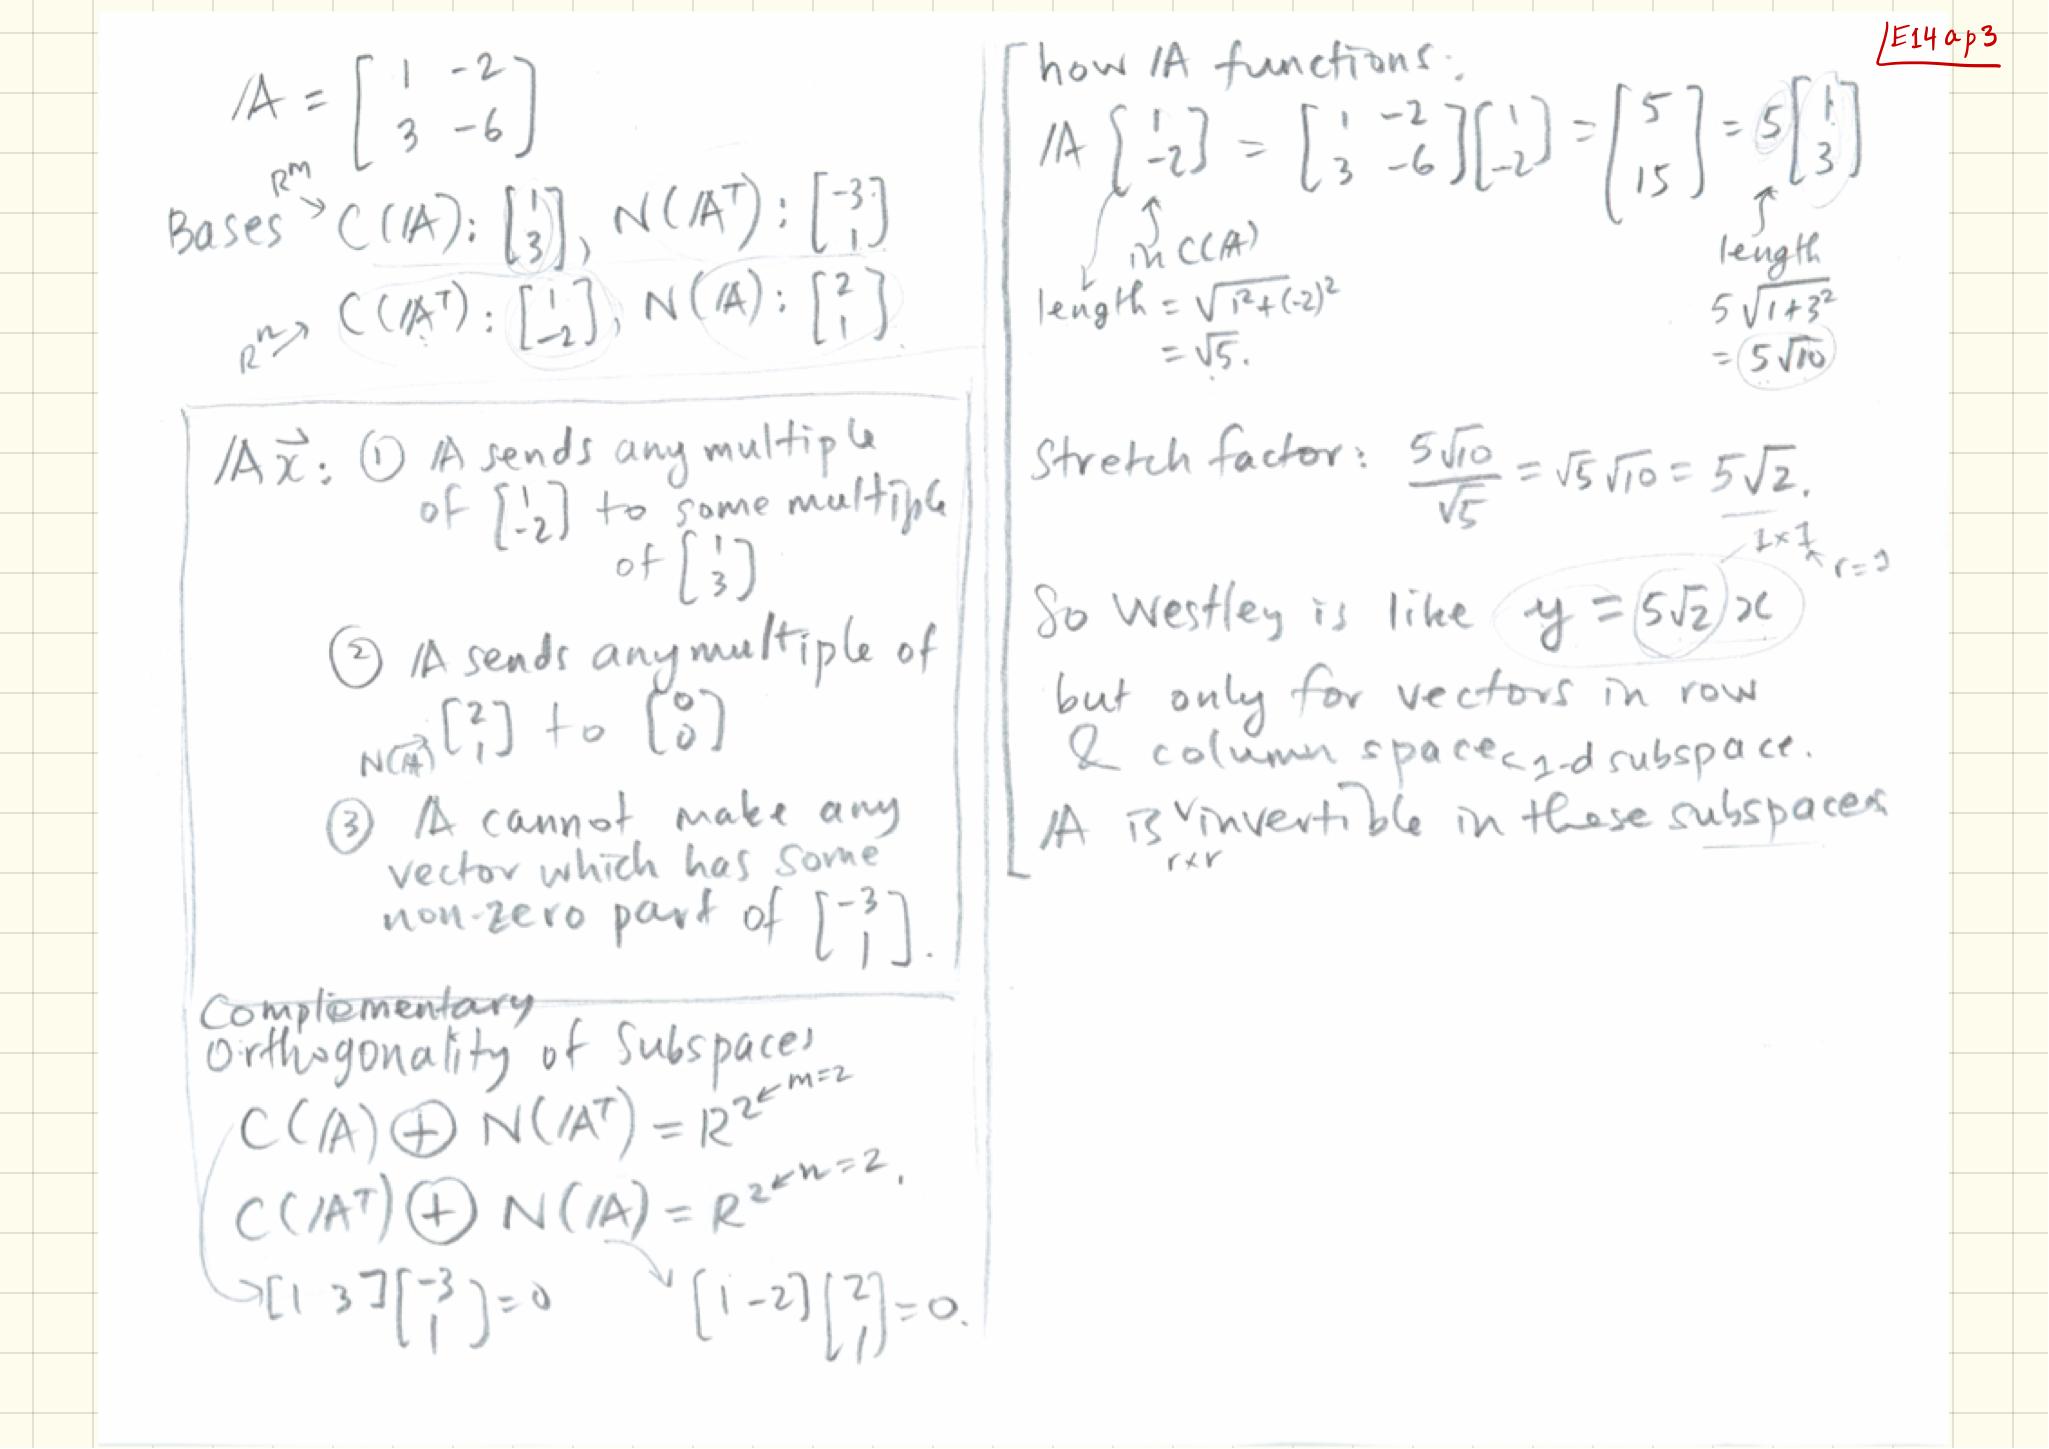 E14ap3
𝔸 = [1 -2; 3 -6]
R^m
Bases → C(𝔸): [1; 3], N(𝔸^T): [-3; 1]
R^n → C(𝔸^T): [1; -2], N(𝔸): [2; 1]
𝔸x⃗: ① 𝔸 sends any multiple
of [1; -2] to some multiple
of [1; 3]
② 𝔸 sends any multiple of
N(𝔸) → [2; 1] to [0; 0]
③ 𝔸 cannot make any
vector which has some
non-zero part of [-3; 1].
Complementary
Orthogonality of Subspaces
C(𝔸) ⊕ N(𝔸^T) = R^2 ← m=2
C(𝔸^T) ⊕ N(𝔸) = R^2 ← n=2.
→ [1 3][-3; 1] = 0
[1 -2][2; 1] = 0.
how 𝔸 functions:
𝔸 [1; -2] = [1 -2; 3 -6][1; -2] = [5; 15] = 5[1; 3]
in C(𝔸)
length = √1²+(-2)²
= √5.
length
5√1+3²
= 5√10
Stretch factor: 5√10/√5 = √5 √10 = 5√2.
1×1 ← r=1
So Westley is like y = 5√2 x
but only for vectors in row
& column space ← 1-d subspace.
𝔸 is ∨ invertible in these subspaces
r×r